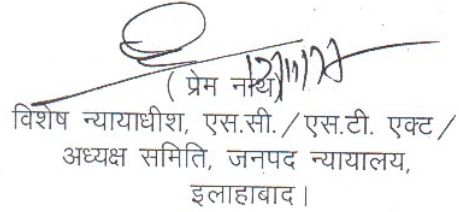 ( प्रेम नाथ)
विशेष न्यायाधीश, एस.सी. / एस.टी. एक्ट /
अध्यक्ष समिति, जनपद न्यायालय,
इलाहाबाद।